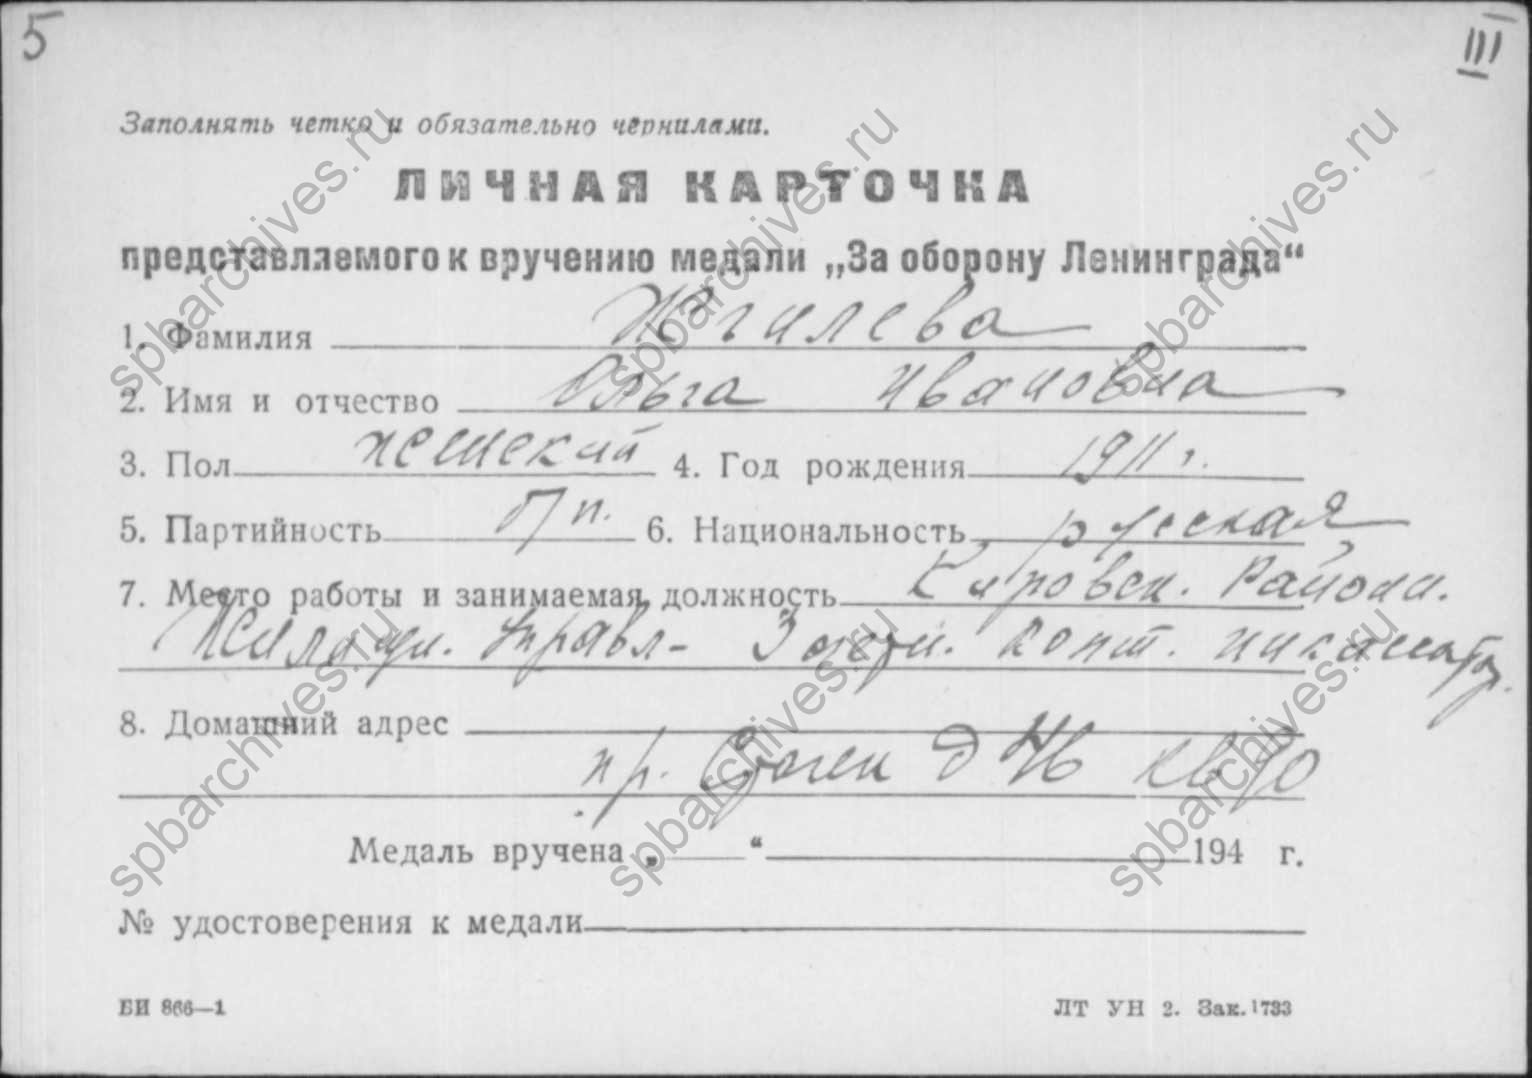 5 III
Заполнять четко и обязательно чернилами.
ЛИЧНАЯ КАРТОЧКА
представляемого к вручению медали „За оборону Ленинграда“
1. Фамилия Жгилева
2. Имя и отчество Ольга Ивановна
3. Пол женский 4. Год рождения 1911 г.
5. Партийность б/п. 6. Национальность русская
7. Место работы и занимаемая должность Кировск. Районн.
Жилищн. Управл-
8. Домашний адрес
пр. Стачек д 46 кв 90
Медаль вручена „ “ 194 г.
№ удостоверения к медали
БИ 866—1 ЛТ УН 2. Зак. 1733
spbarchives.ru
spbarchives.ru
spbarchives.ru
spbarchives.ru
spbarchives.ru
spbarchives.ru